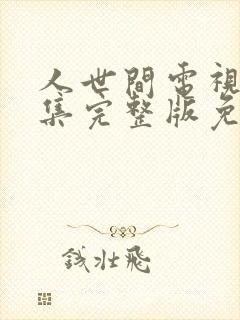 人世間電視
集完整版免
錢壯飛